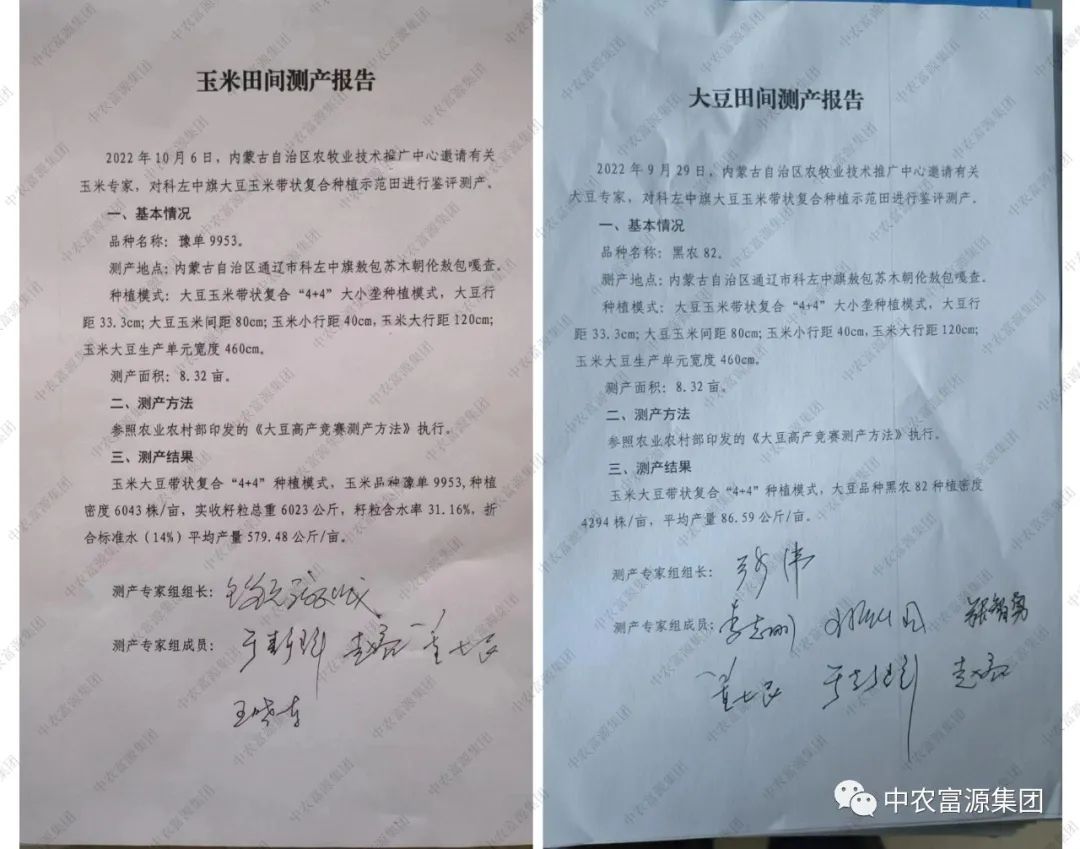 玉米田间测产报告
2022 年 10 月 6 日，内蒙古自治区农牧业技术推广中心邀请有关
玉米专家，对科左中旗大豆玉米带状复合种植示范田进行鉴评测产。
一、基本情况
品种名称：豫单 9953。
测产地点：内蒙古自治区通辽市科左中旗敖包苏木朝伦敖包嘎查。
种植模式：大豆玉米带状复合“4+4”大小垄种植模式，大豆行
距 33.3cm；大豆玉米间距 80cm；玉米小行距 40cm，玉米大行距 120cm；
玉米大豆生产单元宽度 460cm。
测产面积：8.32 亩。
二、测产方法
参照农业农村部印发的《大豆高产竞赛测产方法》执行。
三、测产结果
玉米大豆带状复合“4+4”种植模式，玉米品种豫单 9953，种植
密度 6043 株/亩，实收籽粒总重 6023 公斤，籽粒含水率 31.16%，折
合标准水（14%）平均产量 579.48 公斤/亩。
测产专家组组长：
测产专家组成员：
大豆田间测产报告
2022 年 9 月 29 日，内蒙古自治区农牧业技术推广中心邀请有关
大豆专家，对科左中旗大豆玉米带状复合种植示范田进行鉴评测产。
一、基本情况
品种名称：黑农 82。
测产地点：内蒙古自治区通辽市科左中旗敖包苏木朝伦敖包嘎查。
种植模式：大豆玉米带状复合“4+4”大小垄种植模式，大豆行
距 33.3cm；大豆玉米间距 80cm；玉米小行距 40cm，玉米大行距 120cm；
玉米大豆生产单元宽度 460cm。
测产面积：8.32 亩。
二、测产方法
参照农业农村部印发的《大豆高产竞赛测产方法》执行。
三、测产结果
玉米大豆带状复合“4+4”种植模式，大豆品种黑农 82 种植密度
4294 株/亩，平均产量 86.59 公斤/亩。
测产专家组组长：
测产专家组成员：李志刚 张智勇
中农富源集团